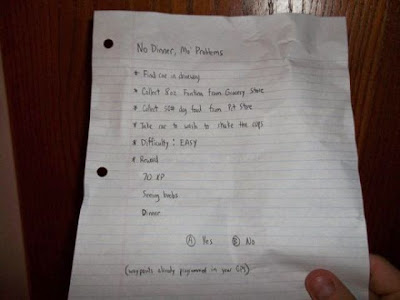 No Dinner, Mo' Problems
* Find car in driveway
* Collect 8oz Fontina from Grocery Store
* Collect 50# dog food from Pet Store
* Take car to wash to make the cops
* Difficulty: EASY
* Reward
20 XP
Seeing boobs
Dinner
(A) Yes (B) No
(waypoints already programmed in your